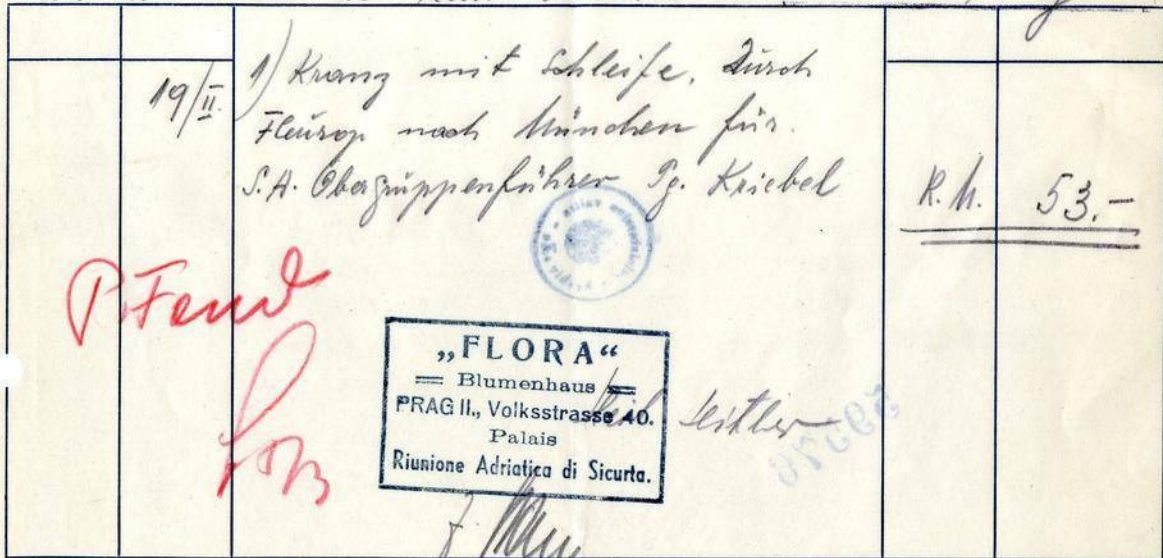 19/II. 1) Kranz mit Schleife. Durch
Fleurop nach München für
S.A. Obergruppenführer Pg. Kriebel
R.M. 53.-
P. Fond
„FLORA“
Blumenhaus
PRAG II., Volksstrasse 40.
Palais
Riunione Adriatica di Sicurta.